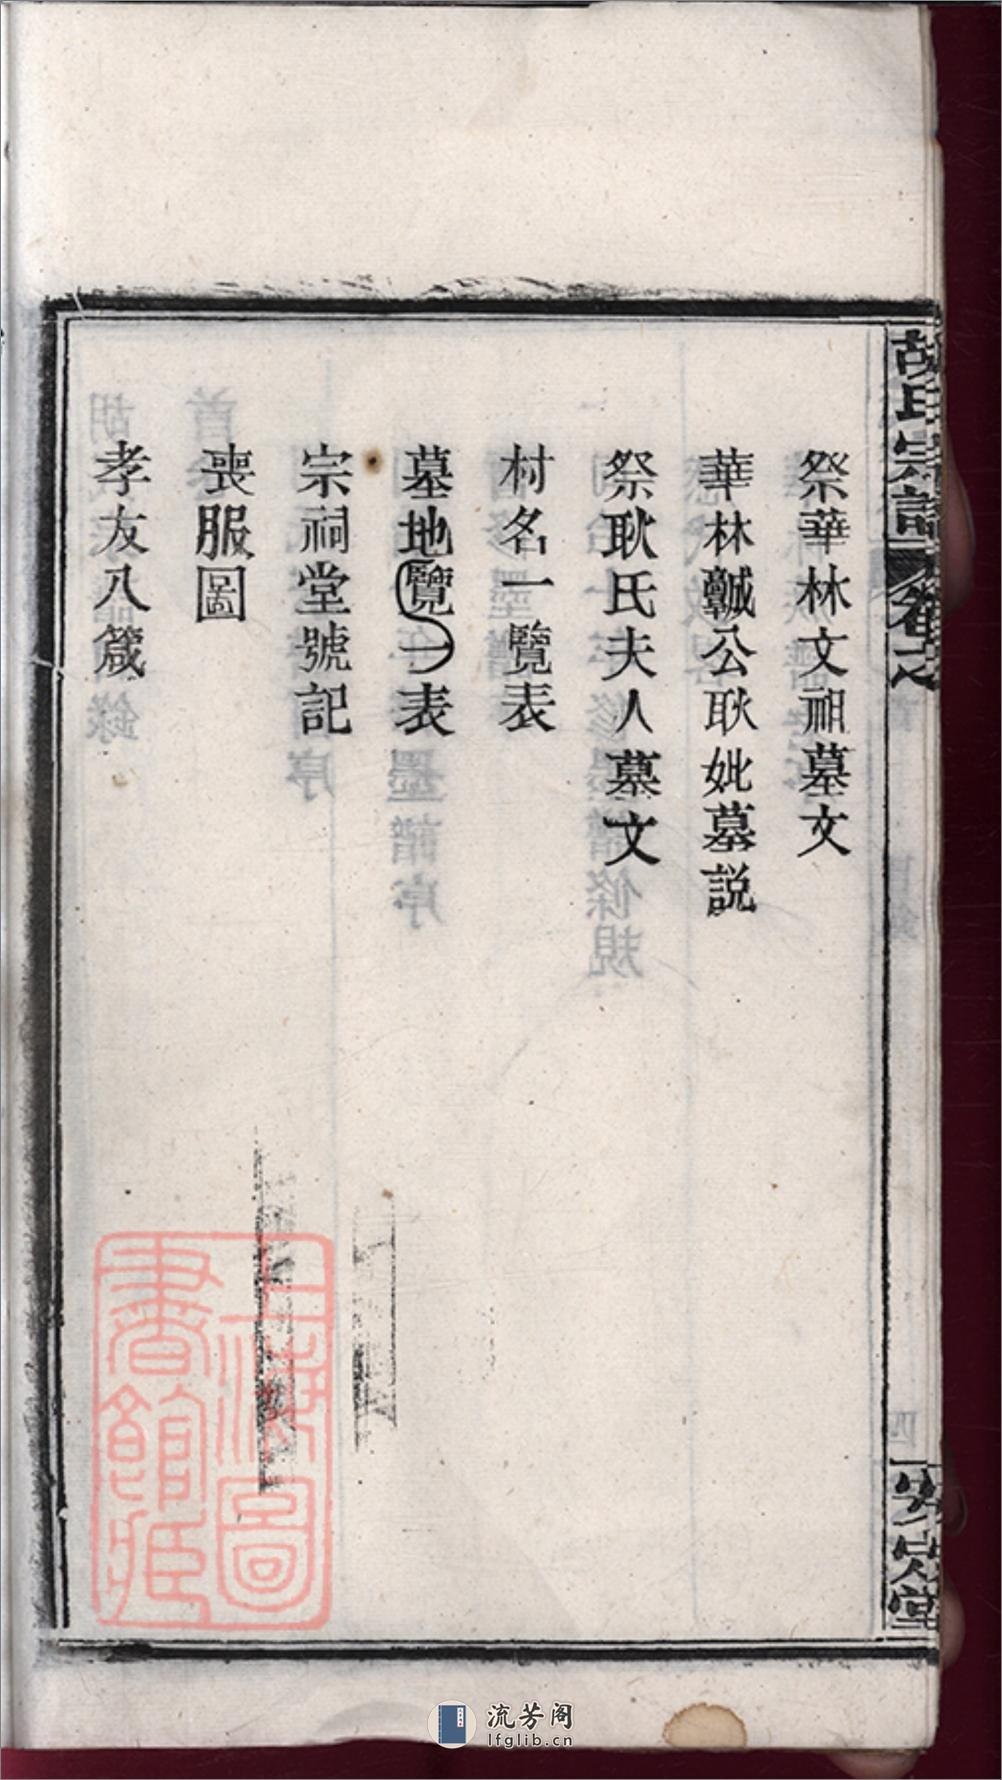 胡氏宗譜
祭華林文祖墓文
華林贑公耿妣墓説
祭耿氏夫人墓文
村名一覽表
墓地覽一表
宗祠堂號記
喪服圖
孝友八箴
安定堂
上海圖
書館藏
流芳阁
lfglib.cn